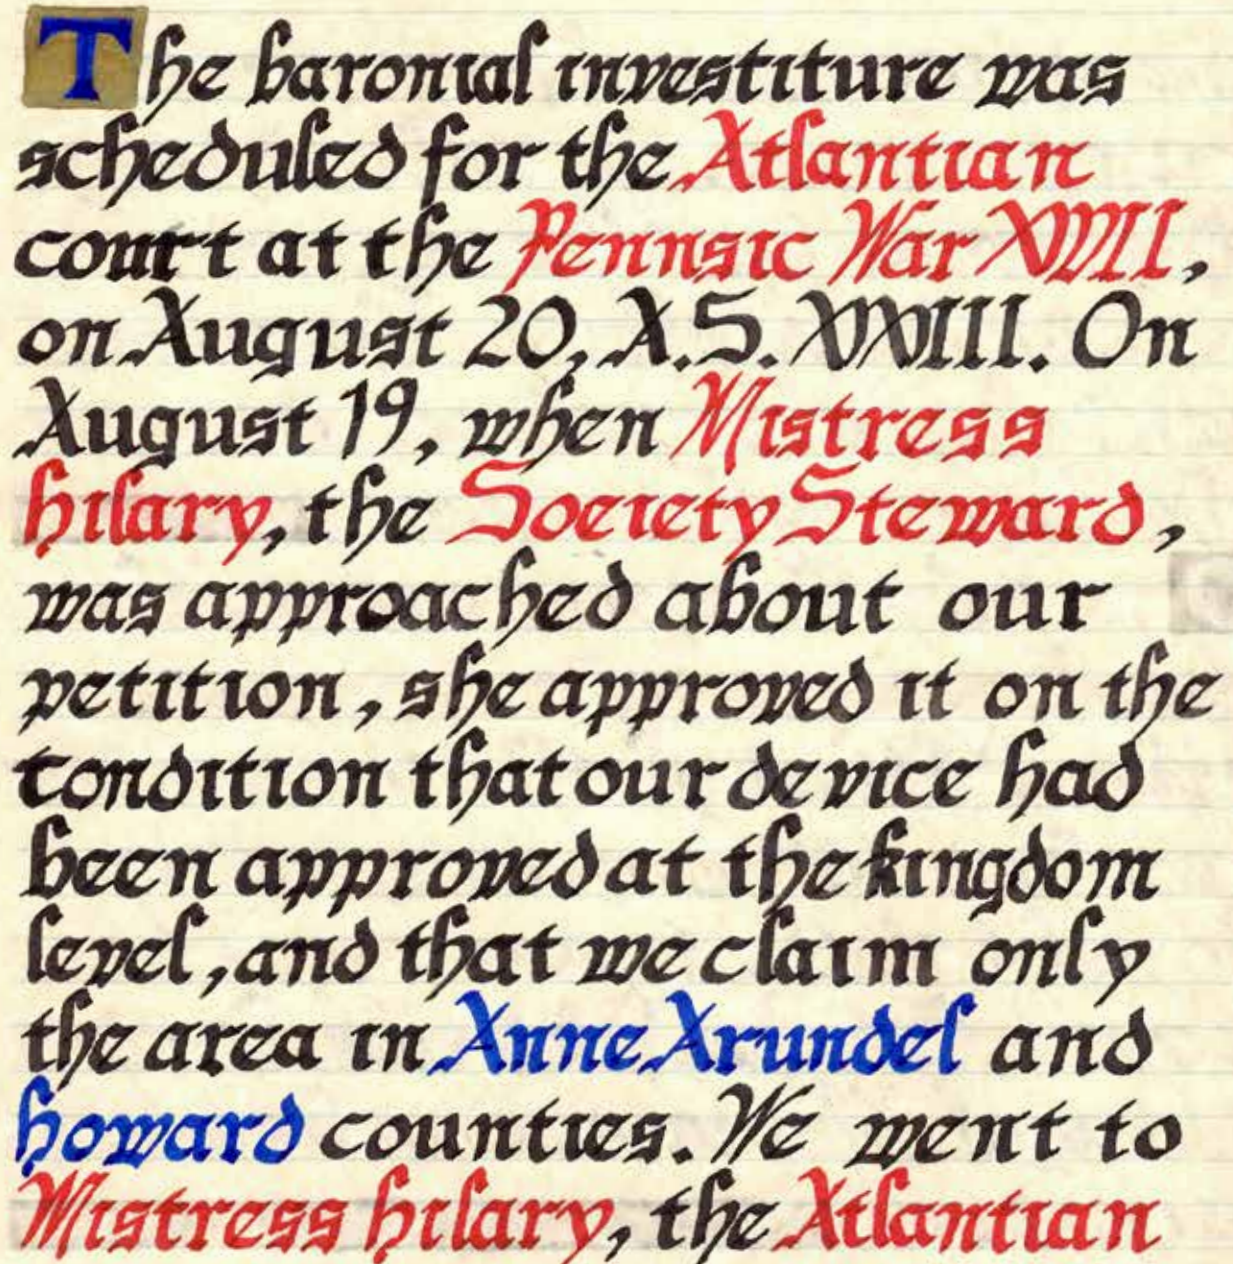 The baronial investiture was
scheduled for the Atlantian
court at the Pennsic War XVII,
on August 20, A.S. XXIII. On
August 19, when Mistress
Hilary, the Society Steward,
was approached about our
petition, she approved it on the
condition that our device had
been approved at the kingdom
level, and that we claim only
the area in Anne Arundel and
Howard counties. We went to
Mistress Hilary, the Atlantian